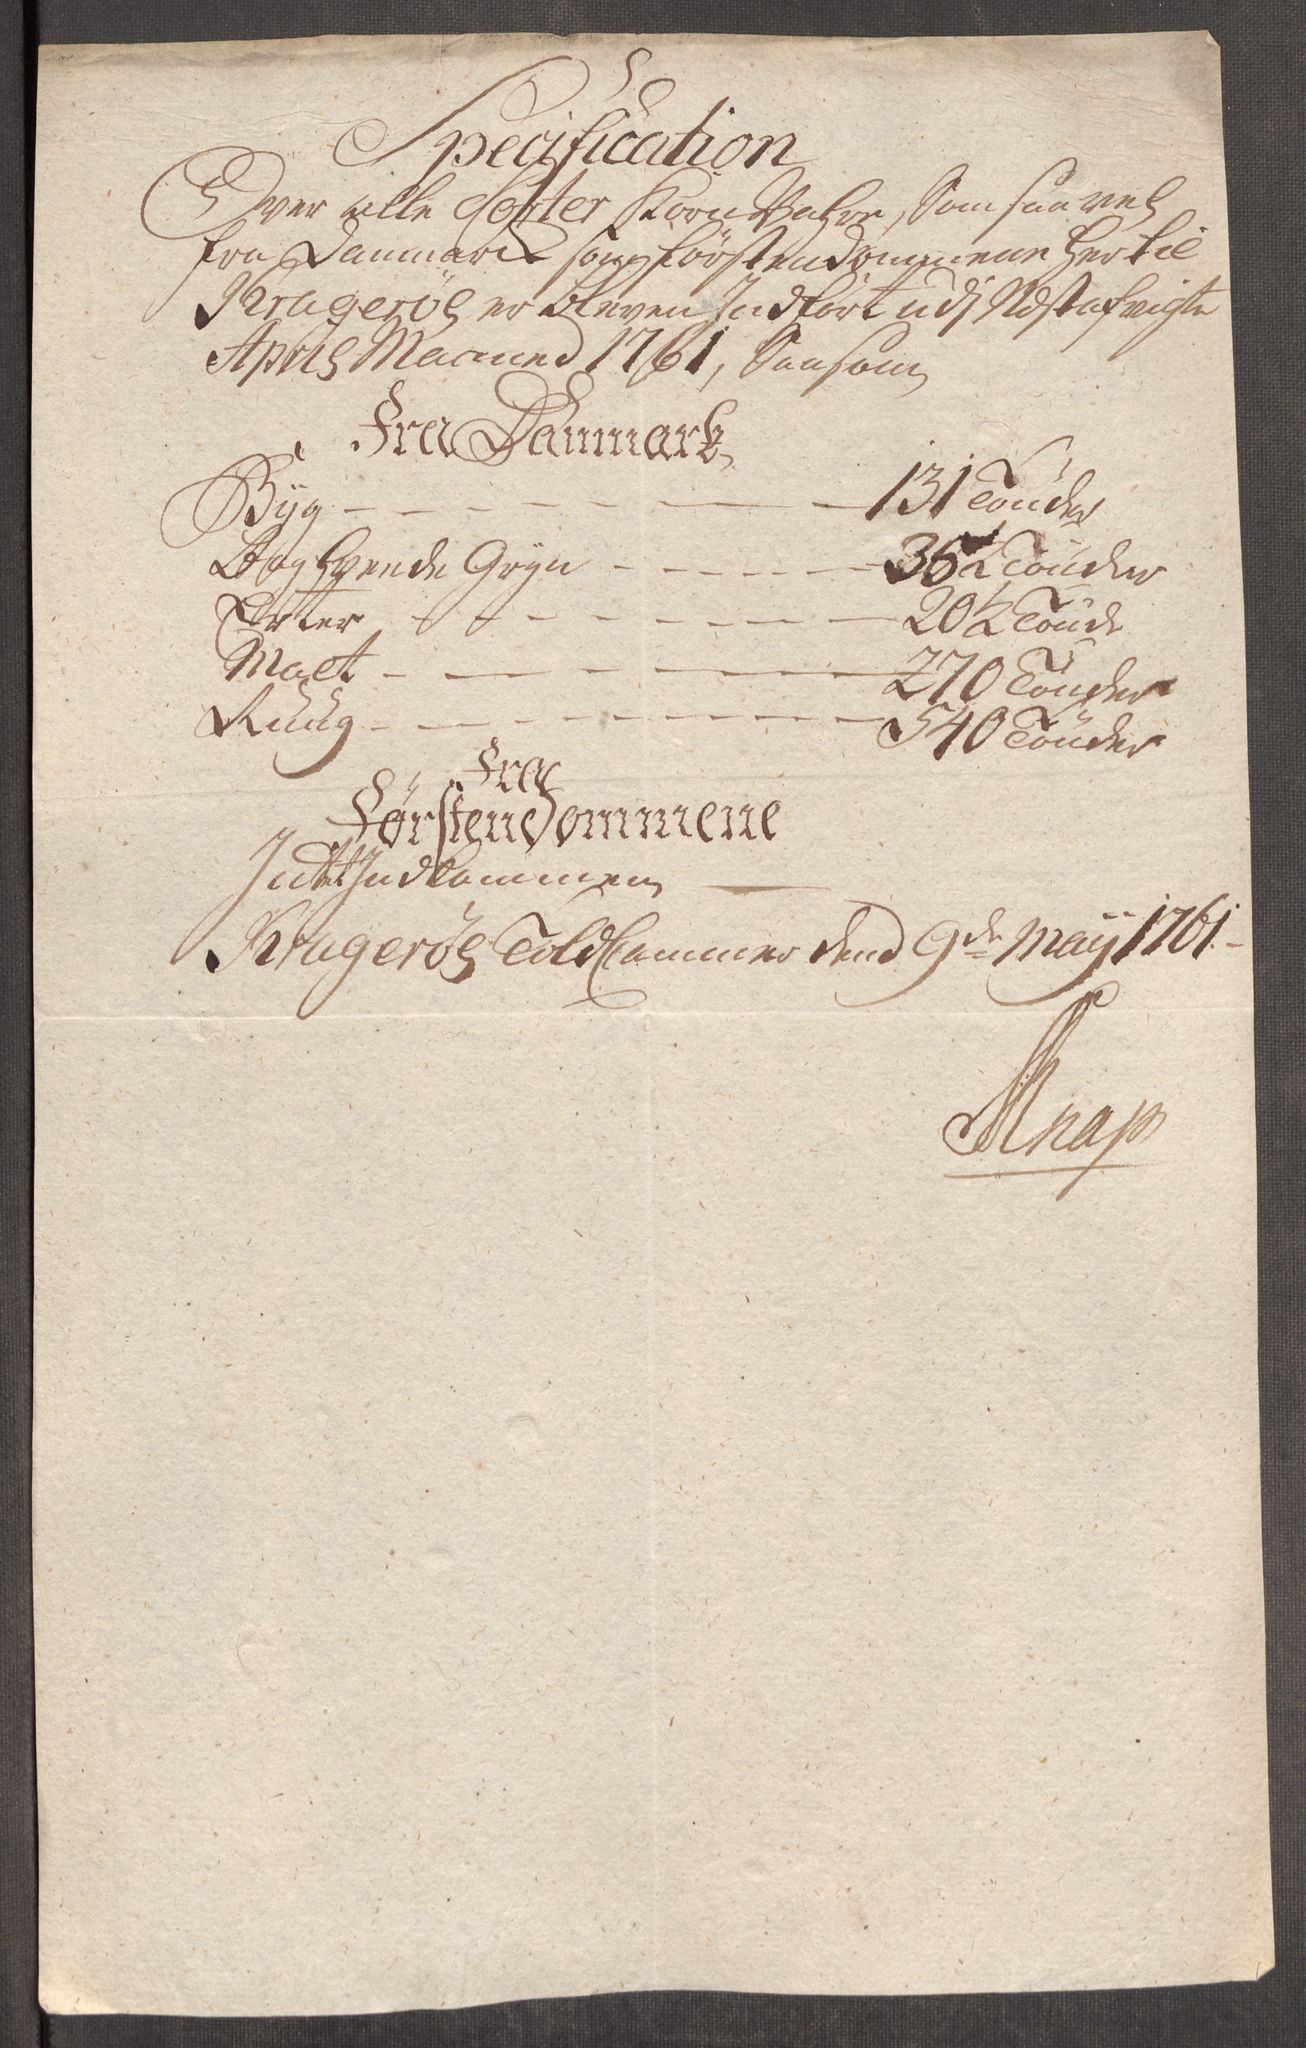 Specification
Over alle Sorter Korn Vahre, Som saa vel
fra Danmark som Förstendommene her til
Kragerøe er bleven Indført udj Nestafvigte
April Maaned 1761, Saasom
Fra Danmark
Byg - - - - - - 131 Tönder
Boghvende Gryn - - - - - 36½ Tönder
Erter - - - - - - 20½ Tönde
Malt - - - - - - 270 Tönder
Ruug - - - - - - 540 Tönder
Fra
Førstendommene
Intet Indkommen
Kragerøe Told Cammer dend 9de Maij 1761.
Knap